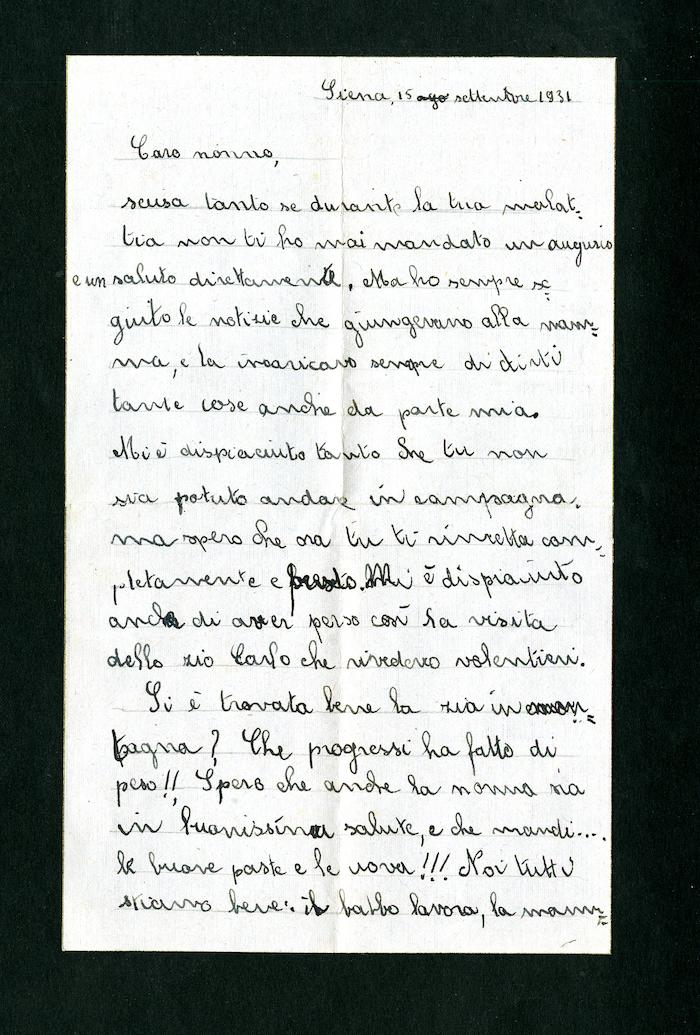 Siena, 15 ago settembre 1931
Caro nonno,
scusa tanto se durante la tua malat=
tia non ti ho mai mandato un augurio
e un saluto direttamente. Ma ho sempre se=
guito le notizie che giungevano alla mam=
ma, e la incaricavo sempre di dirti
tante cose anche da parte mia.
Mi è dispiaciuto tanto che tu non
sia potuto andare in campagna.
ma spero che ora tu ti rimetta com=
pletamente e presto. Mi è dispiaciuto
anche di aver perso così la visita
dello zio Carlo che rivedevo volentieri.
Si è trovata bene la zia in mon=
tagna? Che progressi ha fatto di
peso!! Spero che anche la nonna sia
in buonissima salute, e che mandi....
le buone paste e le uova!!! Noi tutti
stiamo bene: il babbo lavora, la mam=